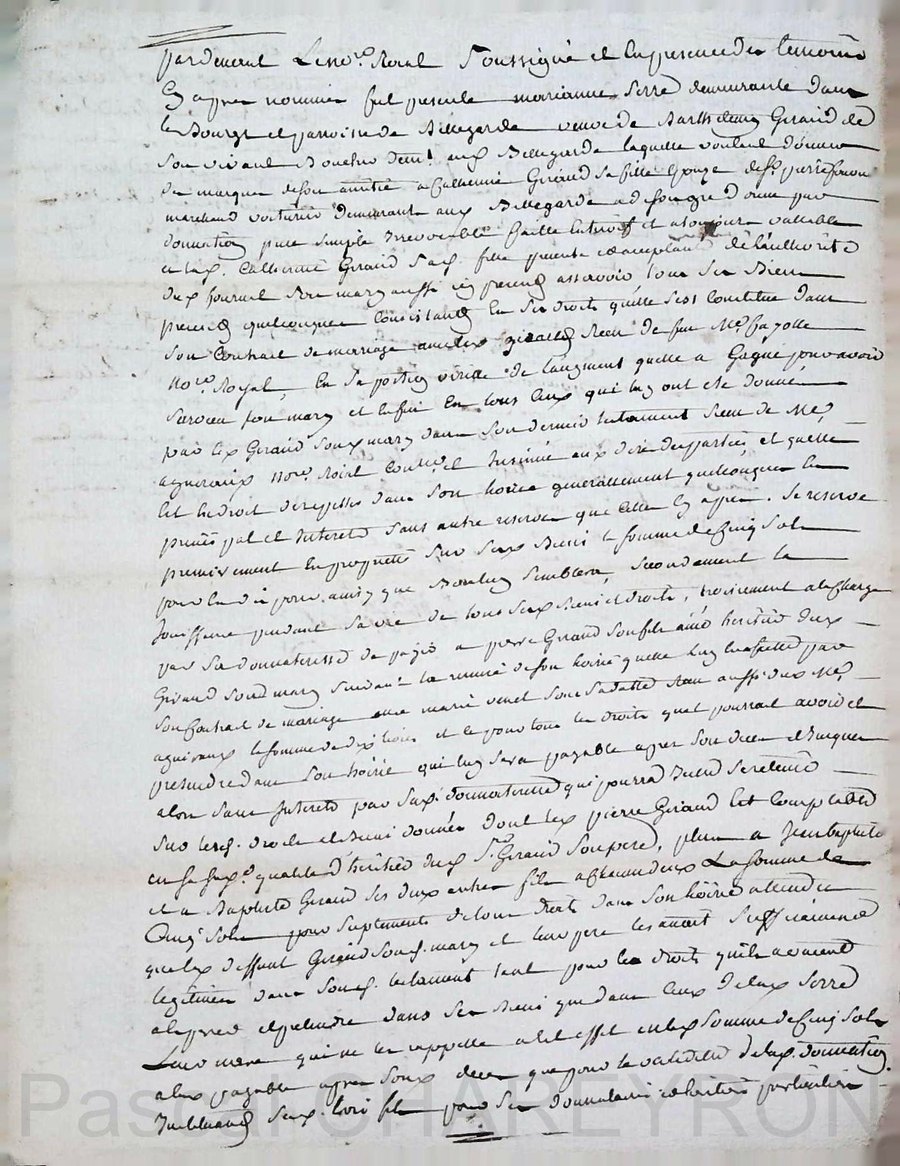 pardevant Le no.re Roial Soussigné et En presence des temoins
Cy apres nommés fut presente marianne Serre demeurante dans
le Bourg et parroisse de Bellegarde veuve de Barthelemy Giraud de
Son vivant demt. aux Bellegarde laquelle voulant donner
des marques de son amitié a Catherine Giraud Sa fille Epouze de Sr. pierre
marchand voiturier demeurant aux Bellegarde a de Son gré donné par
donnation pure Simple Irrevocable faitte Entrevifs et a toujours vallable
a lad. Catherine Giraud Sad. fille presente et acceptante de lauthorité
dud. Son mary aussi icy present assavoir tous Ses Biens
presents quelconques Consistants En Ses droits quelle Sest Constitué dans
Son Contrat de mariage avec led. Giraud Receu de feu Me. fayolle
no.re Royal, En Sa portion virile de Laugment quelle a Gagné pour avoir
Survecu Son mary et Enfin En tous Ceux qui luy ont eté donnés
par led. Giraud Sond. mary dans Son dernier testament Receu de Me.
aguiraux no.re Roial et Insinué aux dire des parties, et quelle
Est En droit de repetter dans Son hoirie generallement quelconques En
principal et Interets Sans autre reserve que Celle Cy apres. Se reserve
premierement En proprieté Sur Sesd. Biens la Somme de Cinq Sols
pour En disposer ainsy que Bon luy Semblera, Secondement la
Jouissance pendant Sa vie de tous Sesd. Biens et droits, troisiement a la Charge
par Sa donnateresse de payer a pierre Giraud Son fils ainé heritier dud.
Giraud Sond. mary Suivant la remise de Son hoirie quelle luy En a faitte par
Son Contrat de mariage avec marie Sous Sa datte Receu aussi dud. Me.
aguiraux la Somme de dix livres et ce pour tous les droits quil pourrait avoir et
pretendre dans Son hoirie qui luy Sera payable apres Son deces et Jusques
alors Sans Interets par Sad. donnateresse qui pourra
Sur lesd. droits et Biens donnés dont led. pierre Giraud Est Comptable
en Sa Susd. qualité d'heritier dud. Sr. Giraud Son pere, plus a Jean baptiste
et a Baptiste Giraud Ses deux autres fils a Chacun deux La Somme de
Cinq Sols pour Suplements de leur droits dans Son hoirie attendu
que led. deffunt Giraud Sond. mary et leur pere les avoit Suffisamment
legitimés dans Sond. testament tant pour les droits quils avoient
a esperer et pretendre dans Ses Biens que dans Ceux de lad. Serre
Leur mere qui ne les rappelle a Cet effet En lad. Somme de Cinq Sols
a Eux payable apres Sond. deces que pour la validité de lad. donnation.
Instituant Sesd. trois fils pour Ses donnataires et heritiers particuliers
Pascal CHAREYRON